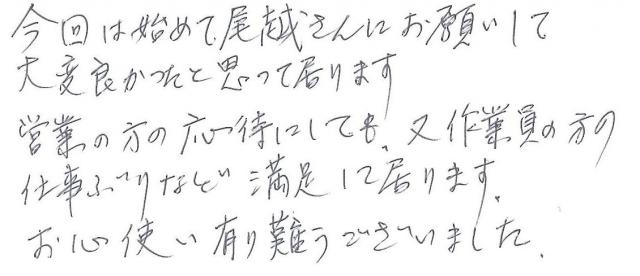 今回は始めて尾越さんにお願いして
大変良かったと思って居ります
営業の方の応待にしても、又作業員の方の
仕事ぶりなど満足して居ります。
お心使い有り難うございました。